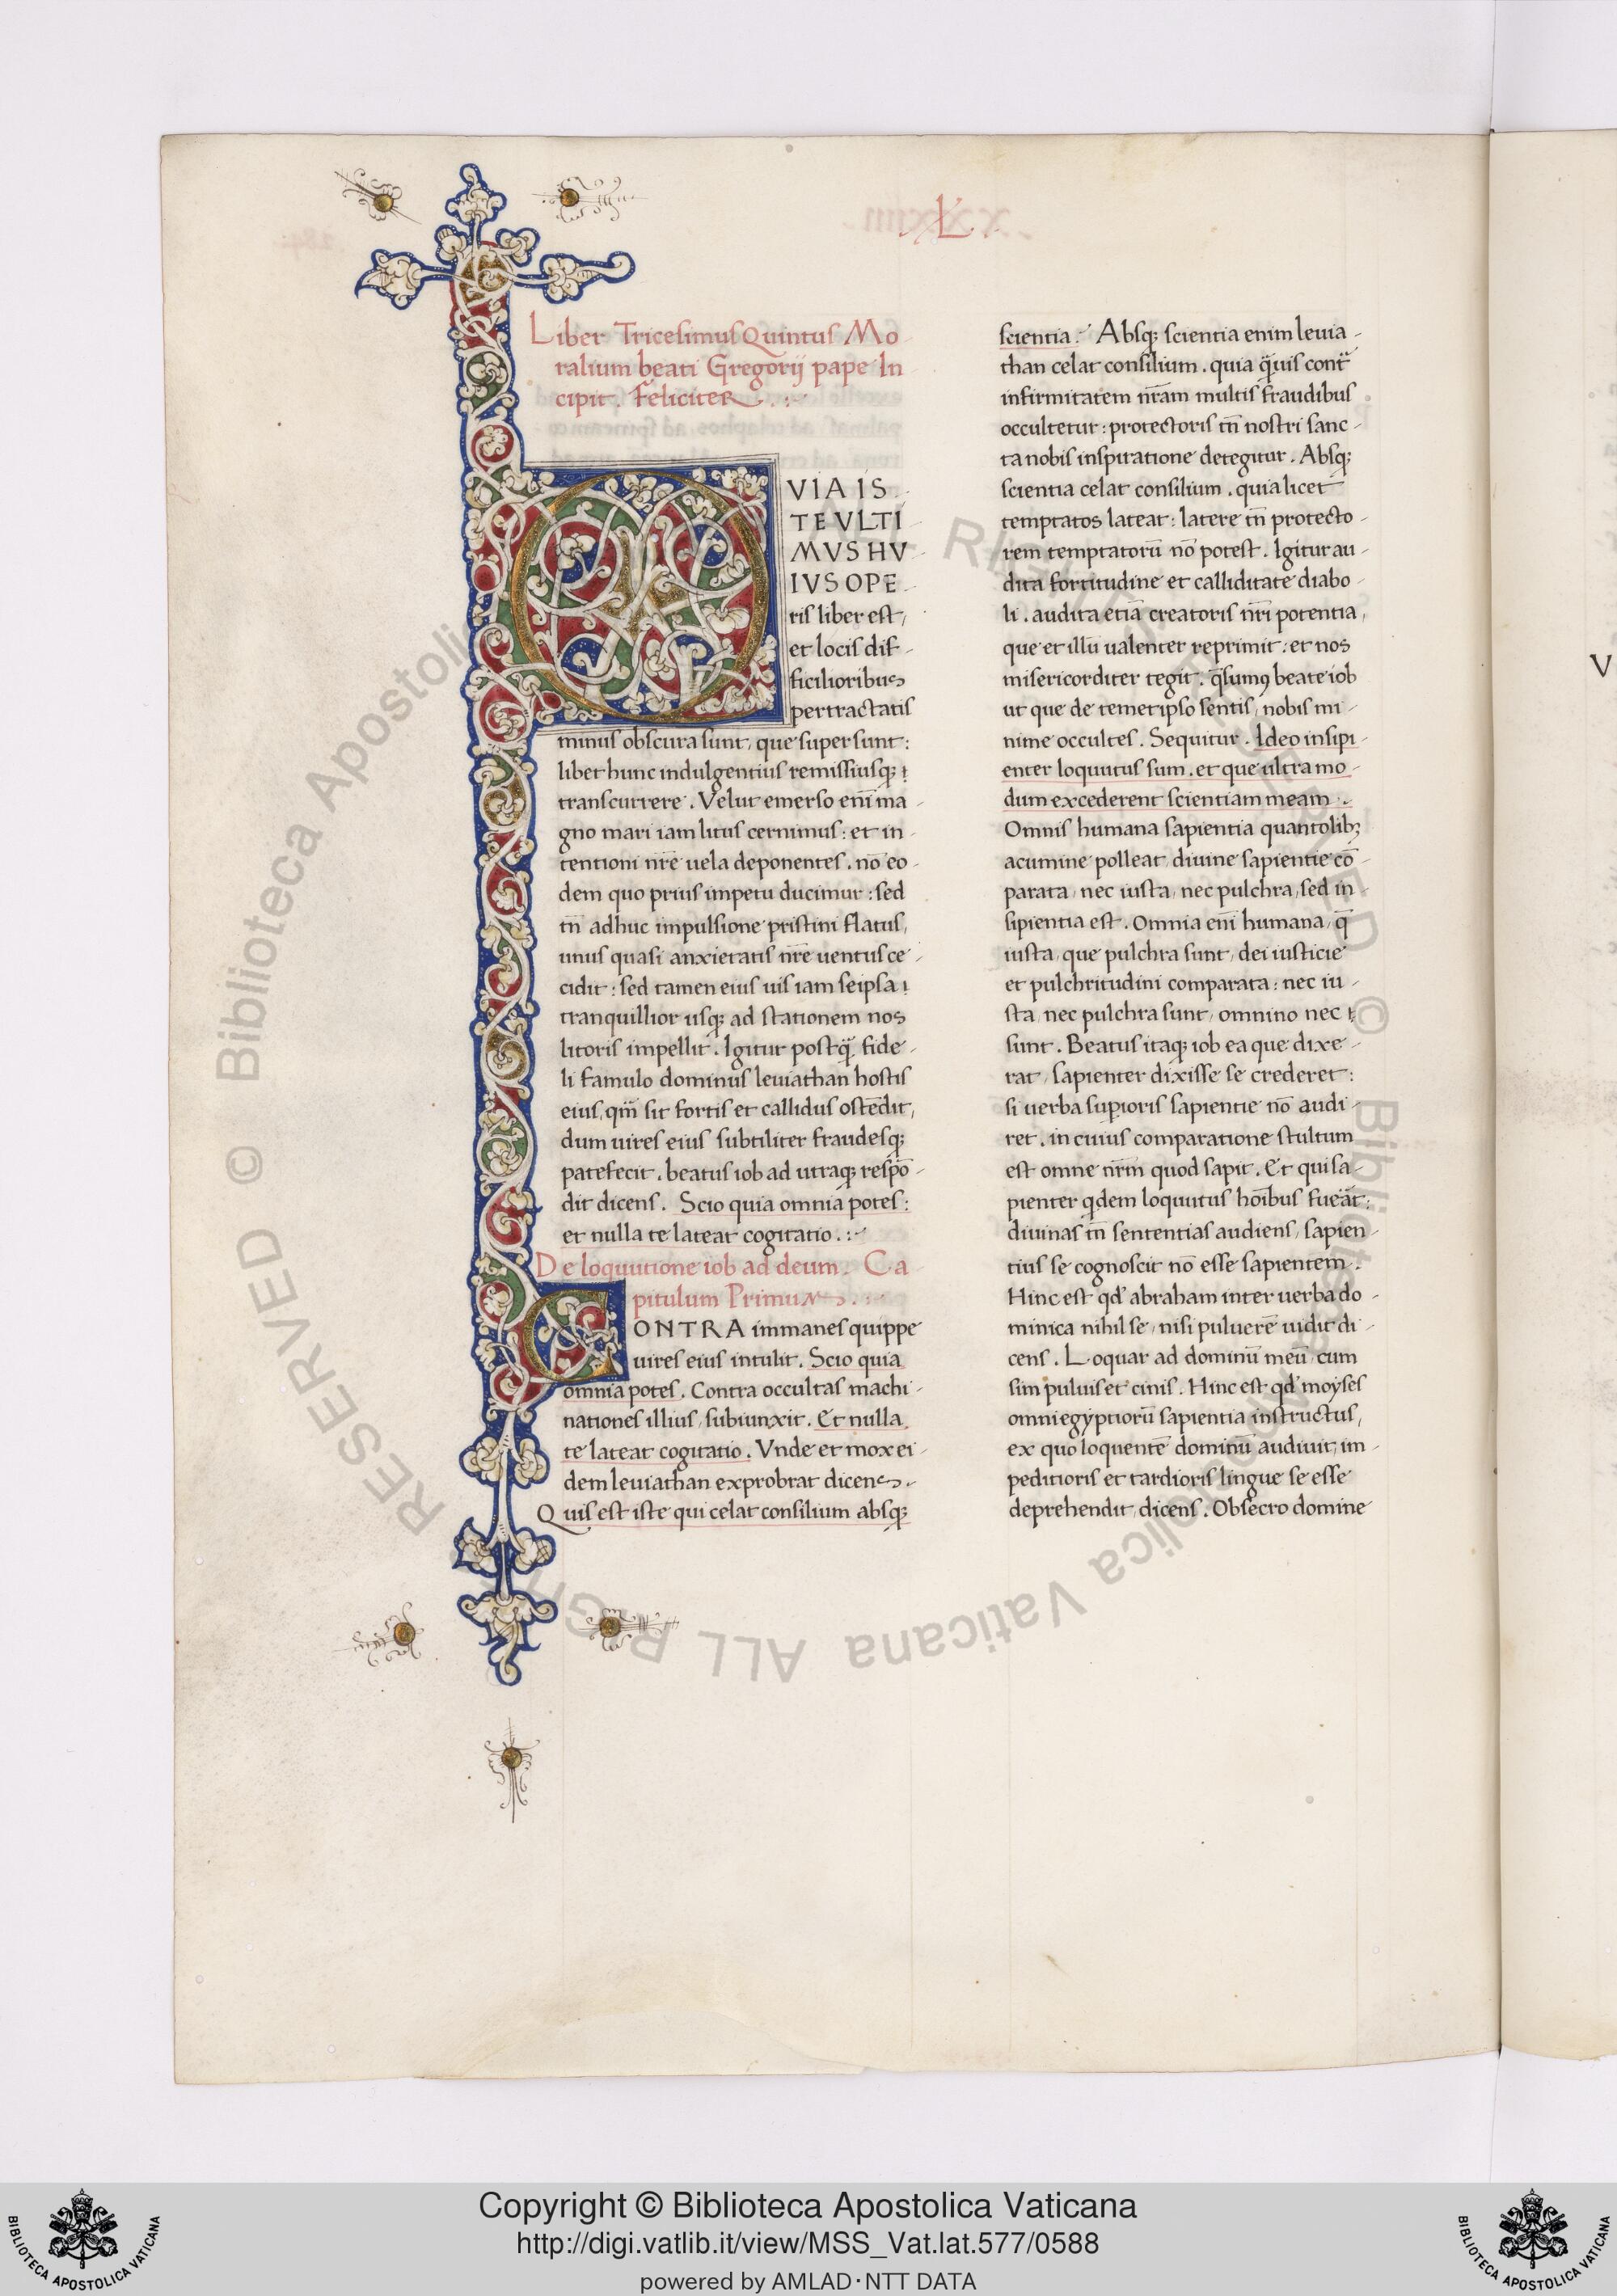 .L.
Liber Tricesimus Quintus Mo
ralium beati Gregorij pape In
cipit. Feliciter.
VIA IS
TE VLTI
MVS HV
IVS OPE
ris liber est,
et locis dif-
ficilioribus
pertractatis
minus obscura sunt, que super sunt:
libet hunc indulgentius remissiusq;
transcurrere. Velut emerso eni̅ ma-
gno mari iam litus cernimus: et in-
tentioni nr̅e uela deponentes. no̅ eo-
dem quo prius impetu ducimur: sed
tn̅ adhuc impulsione pristini flatus,
unus quasi anxietatis nr̅e uentus ce-
cidit: sed tamen eius uis iam seipsa
tranquillior usq; ad stationem nos
litoris impellit. Igitur postq̅ fide-
li famulo dominus leuiathan hostis
eius, qm̅ sit fortis et callidus oste̅dit,
dum uires eius subtiliter fraudesq;
patefecit. beatus iob ad utraq; respo̅-
dit dicens. Scio quia omnia potes:
et nulla te lateat cogitatio.:~
De loquutione iob ad deum. Ca
pitulum Primum.
CONTRA immanes quippe
uires eius intulit. Scio quia
omnia potes. Contra occultas machi-
nationes illius, subiunxit. Et nulla
te lateat cogitatio. Vnde et mox ei-
dem leuiathan exprobrat dicens.
Quis est iste qui celat consilium absq;
scientia: Absq; scientia enim leuia-
than celat consilium. quia q̅uis cont̅
infirmitatem nr̅am multis fraudibus
occultetur: protectoris tn̅ nostri sanc-
ta nobis inspiratione detegitur. Absq;
scientia celat consilium. quia licet
temptatos lateat: latere tn̅ protecto-
rem temptatoru̅ no̅ potest. Igitur au-
dita fortitudine et calliditate diabo-
li. audita etia̅ creatoris nr̅i potentia,
que et illu̅ ualenter reprimit: et nos
misericorditer tegit. q̅sumꝰ beate iob
ut que de temetipso sentis, nobis mi-
nime occultes. Sequitur. Ideo insipi-
enter loquutus sum. et que ultra mo-
dum excederent scientiam meam.
Omnis humana sapientia quantolib;
acumine polleat, diuine sapientie co̅-
parata, nec iusta, nec pulchra, sed in-
sipientia est. Omnia eni̅ humana, q̅
iusta, que pulchra sunt, dei iusticie
et pulchritudini comparata: nec iu-
sta, nec pulchra sunt, omnino nec
sunt. Beatus itaq; iob ea que dixe-
rat, sapienter dixisse se crederet:
si uerba sup̲ioris sapientie no̅ audi-
ret. in cuius comparatione stultum
est omne nr̅m quod sapit. Et qui sa-
pienter q̇dem loquutus hoi̅bus fuea̅t:
diuinas tn̅ sententias audiens, sapien-
tius se cognoscit no̅ esse sapientem.
Hinc est qd̓ abraham inter uerba do-
minica nihil se, nisi puluere̅ uidit di-
cens. Loquar ad dominu̅ meu̅, cum
sim puluis et cinis. Hinc est qd̓ moyses
omni egyptioru̅ sapientia instructus,
ex quo loquente̅ dominu̅ audiuit, im-
peditioris et tardioris lingue se esse
deprehendit, dicens. Obsecro domine
V
© Biblioteca Apostolica Vaticana ALL RIGHTS RESERVED
Copyright © Biblioteca Apostolica Vaticana
http://digi.vatlib.it/view/MSS_Vat.lat.577/0588
powered by AMLAD·NTT DATA
BIBLIOTECA APOSTOLICA VATICANA
BIBLIOTECA APOSTOLICA VATICANA